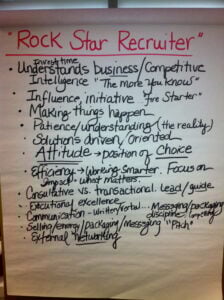 "ROCK STAR RECRUITER"
Invest time
• Understands business/competitive
Intelligence "The more you know"
• Influence, initiative "fire starter"
• Making things happen
• Patience/understanding (the reality)
• Solutions driven, oriented
Attitude → position of choice
• Efficiency → Working smarter. Focus on
impact what matters.
• Consultative vs transactional. Lead/guide.
• Executional excellence
• Communication - written/verbal... Messaging/packaging
discipline
• Selling/energy/packaging/messaging "Pitch"
• External networking